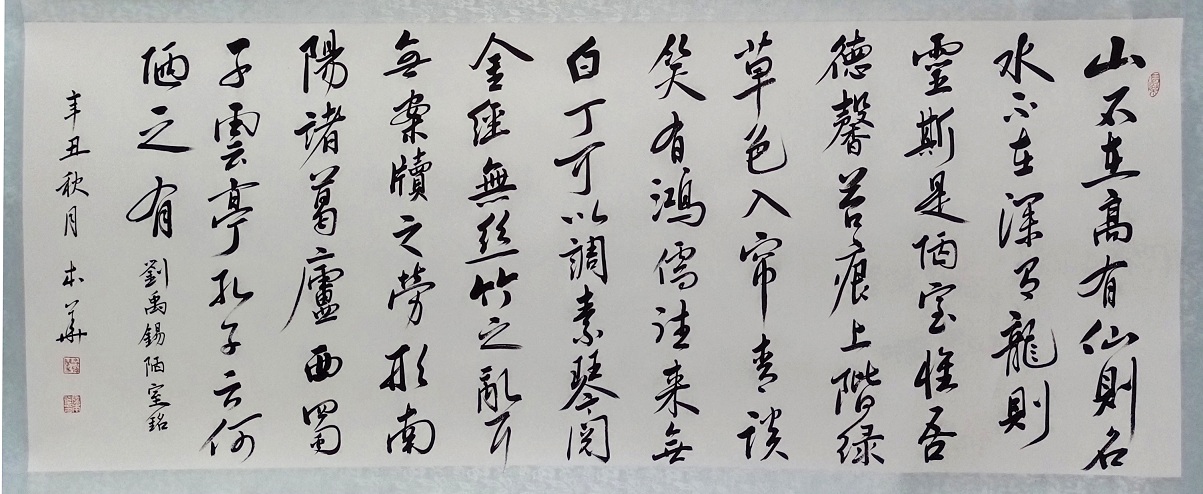 山不在高有仙則名
水不在深有龍則
靈斯是陋室惟吾
德馨苔痕上階緑
草色入帘青談
笑有鴻儒往来無
白丁可以調素琴閱
金經無丝竹之亂耳
無案牘之勞形南
陽諸葛廬西蜀
子雲亭孔子云何
陋之有 劉禹錫陋室銘
辛丑秋月 木華